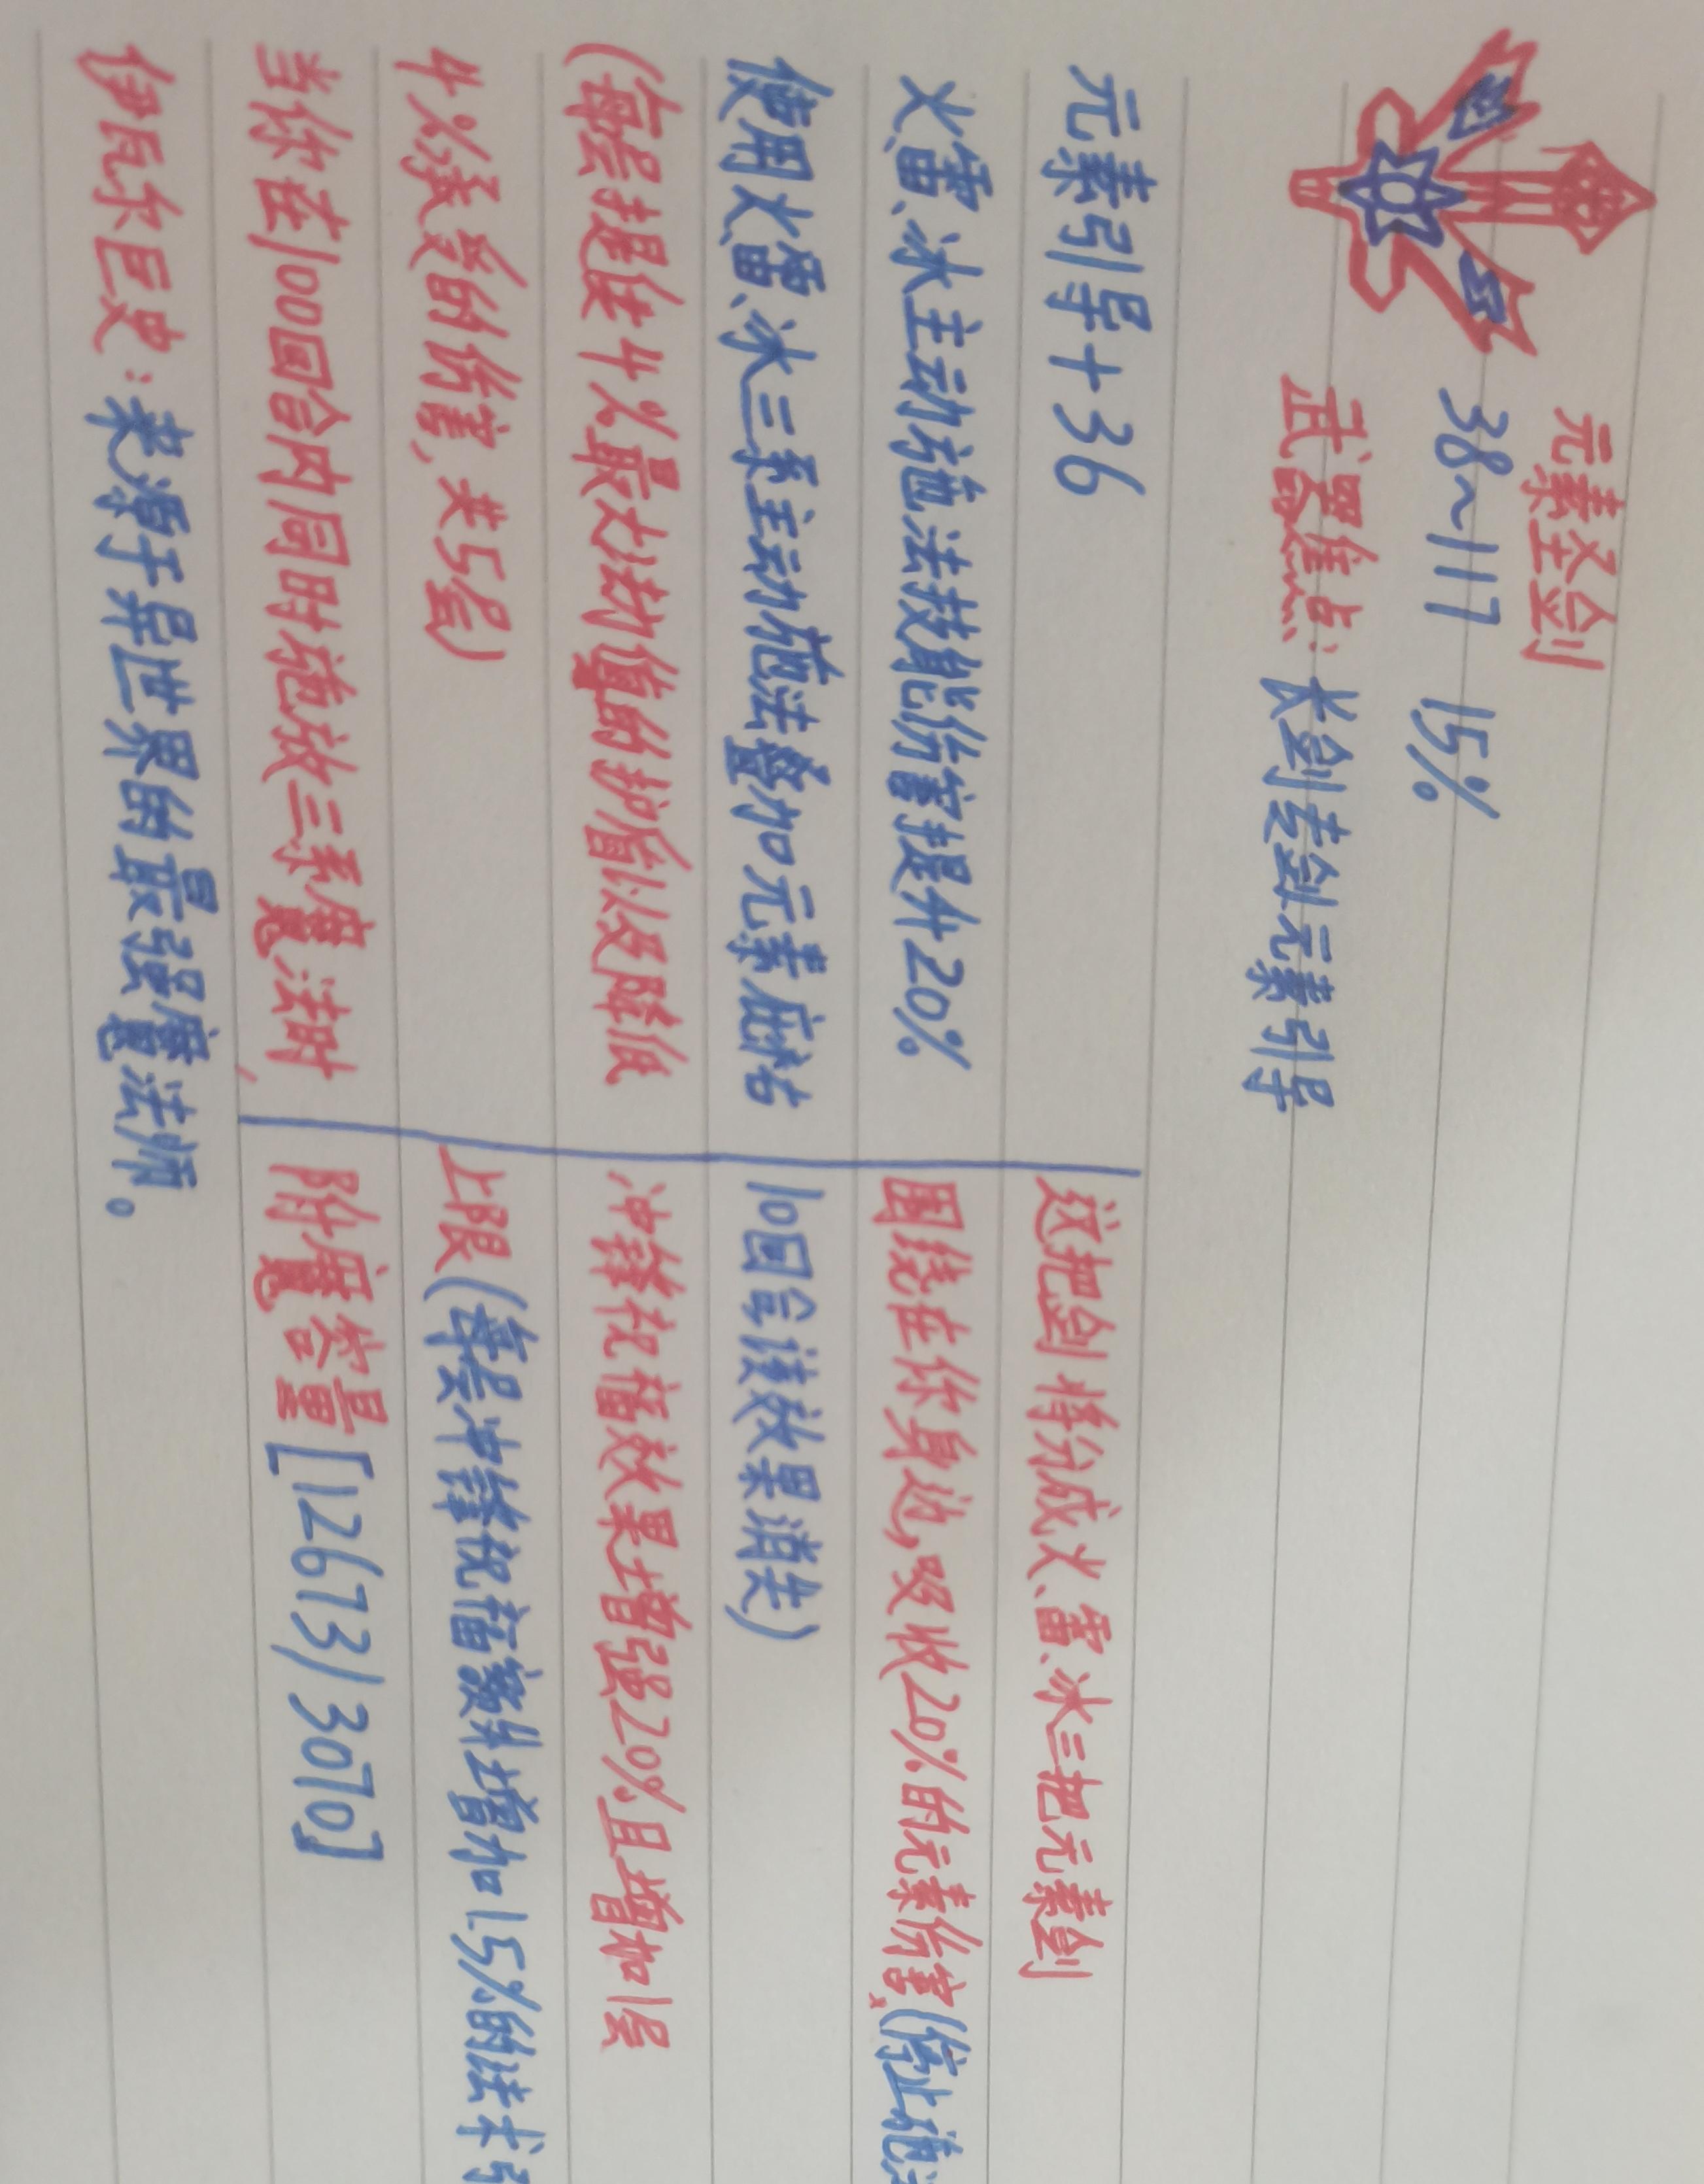 元素圣剑
38~117 15%
武器焦点:长剑专剑元素引导
元素引导+36
火、雷、冰主动施法技能伤害提升20%
使用火、雷、冰三系主动施法叠加元素庇佑
(每层提供4%最大法力值的护盾以及降低
4%承受的伤害,共5层)
当你在100回合内同时施放三系魔法时,
这把剑将分成火、雷、冰三把元素剑
围绕在你身边,吸收20%的元素伤害(停止施法
10回合该效果消失)
冲锋祝福效果增强20%且增加1层
上限(每层冲锋祝福额外增加1.5%的法术
附魔容量[12673/3070]
伊瓦尔巨史:来源于异世界的最强魔法师。